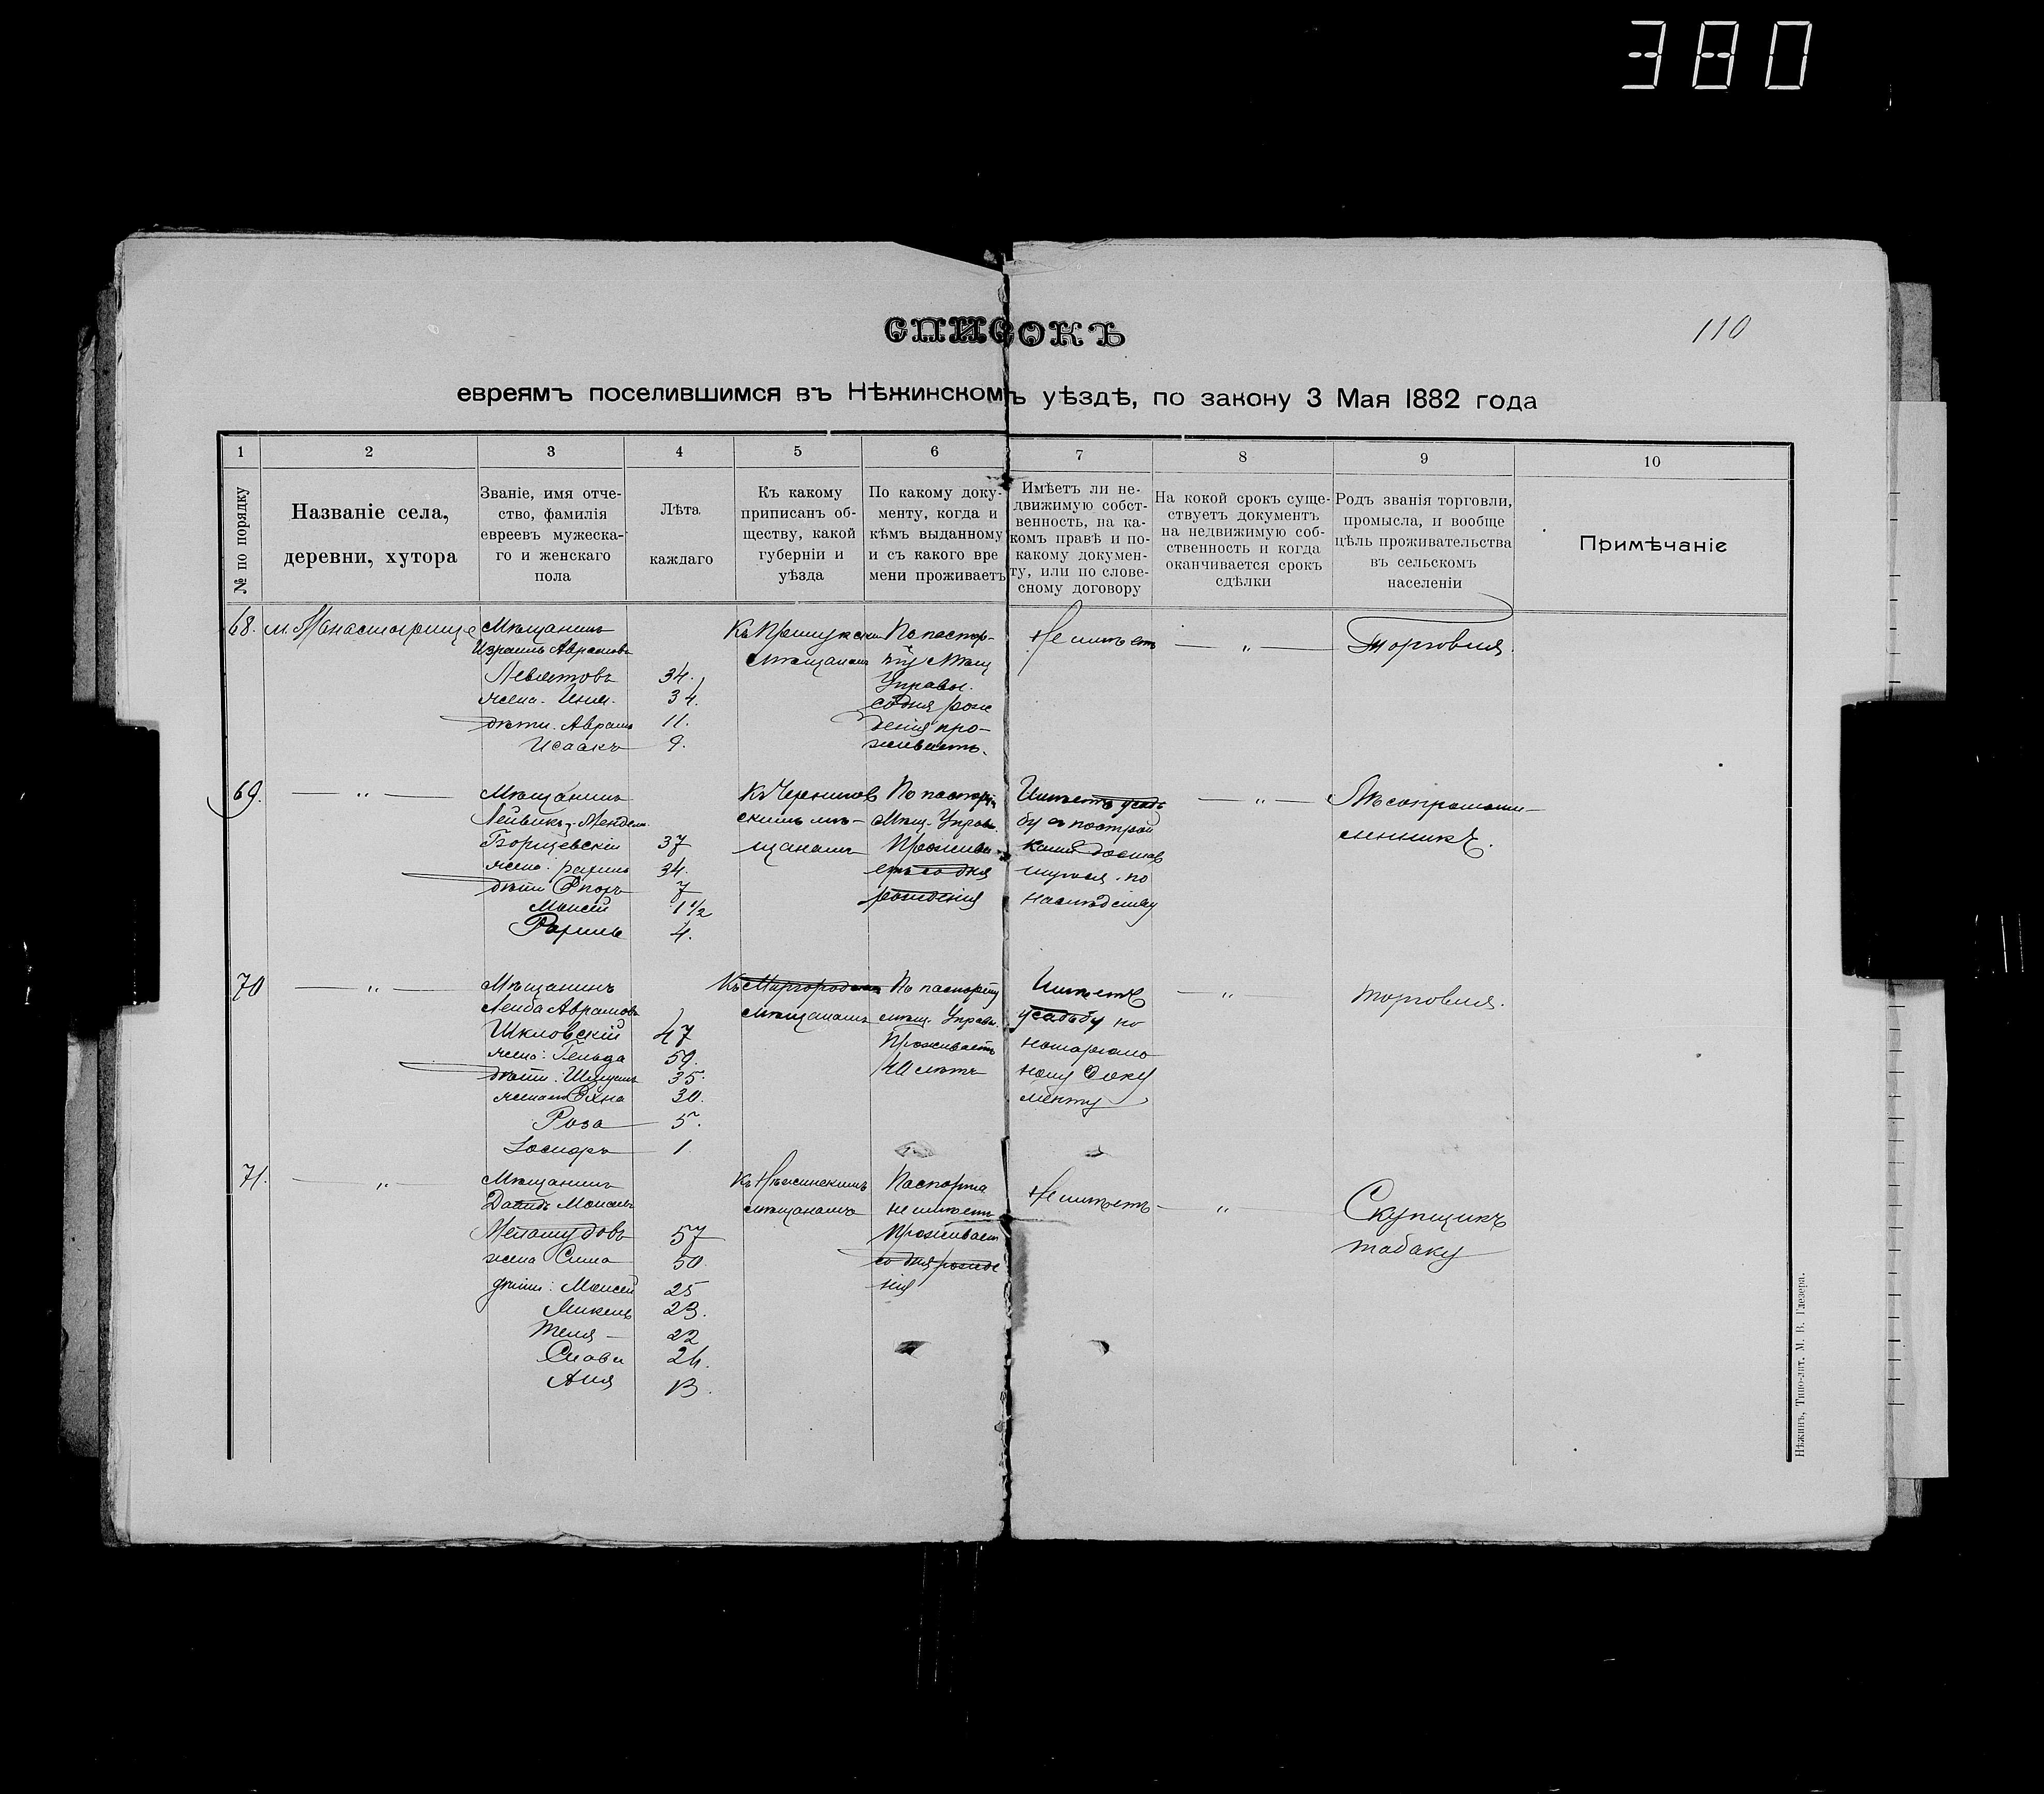 380
110
СПИСОКЪ
евреямъ поселившимся въ Нѣжинскомъ уѣздѣ, по закону 3 Мая 1882 года
1 2 3 4 5 6 7 8 9 10
№ по порядку
Названіе села,
деревни, хутора
Званіе, имя отче-
ство, фамилія
евреевъ мужеска-
го и женскаго
пола
Лѣта
каждаго
Къ какому
приписанъ об-
ществу, какой
губерніи и
уѣзда
По какому доку-
менту, когда и
кѣмъ выданному
и съ какого вре
мени проживаетъ
Имѣетъ ли не-
движимую собст-
венность, на ка-
комъ правѣ и по-
какому докумен-
ту, или по слове-
сному договору
На кокой срокъ суще-
ствуетъ документъ
на недвижимую соб-
ственность и когда
оканчивается срокъ
сдѣлки
Родъ званія торговли,
промысла, и вообще
цѣль проживательства
въ сельскомъ
населеніи
Примѣчаніе
68. м. Монастырище
Мѣщанинъ
Израиль Аврамовъ
Левитовъ 34.
жена 34.
дѣти. Аврамъ 11.
Исаакъ 9.
Къ Прилукскимъ
мѣщанамъ
По паспор-
ту Мѣщ
Управы.
со дня рож
денія про-
живаетъ.
Не имѣетъ
— „ —
Торговля.
69. — „ —
Мѣщанинъ
Борщевскій 37
жена 34.
дѣти 7
Моисей 1½
4.
Къ Чернигов
скимъ мѣ-
щанамъ
По паспорту
Мѣщ. Управ.
Прожива
етъ со дня
рожденія
Имѣетъ усадь
бу съ построй
ками достав
шуюся по
наслѣдству
— „ —
Лѣсопромыш-
ленникъ.
70 — „ —
Мѣщанинъ
Лейба Аврамовъ
Шкловскій 47
жена: 59.
дѣти: 35.
жена 30.
Роза 5.
1
Къ Миргородскимъ
мѣщанамъ
По паспорту
мѣщ. Управы.
Проживаетъ
лѣтъ
Имѣетъ
усадьбу по
нотаріаль
ному доку
менту
— „ —
торговля.
71. — „ —
Мѣщанинъ
Давидъ
57
жена Сима 50.
дѣти: Моисей 25
23.
22
24.
Аня 13.
Къ Нѣжинскимъ
мѣщанамъ
Паспорта
не имѣетъ
Проживает
со дня рожде
нія
Не имѣетъ
— „ —
Скупщикъ
табаку
Нѣжинъ, Типо-лит. М. В. Глезера.